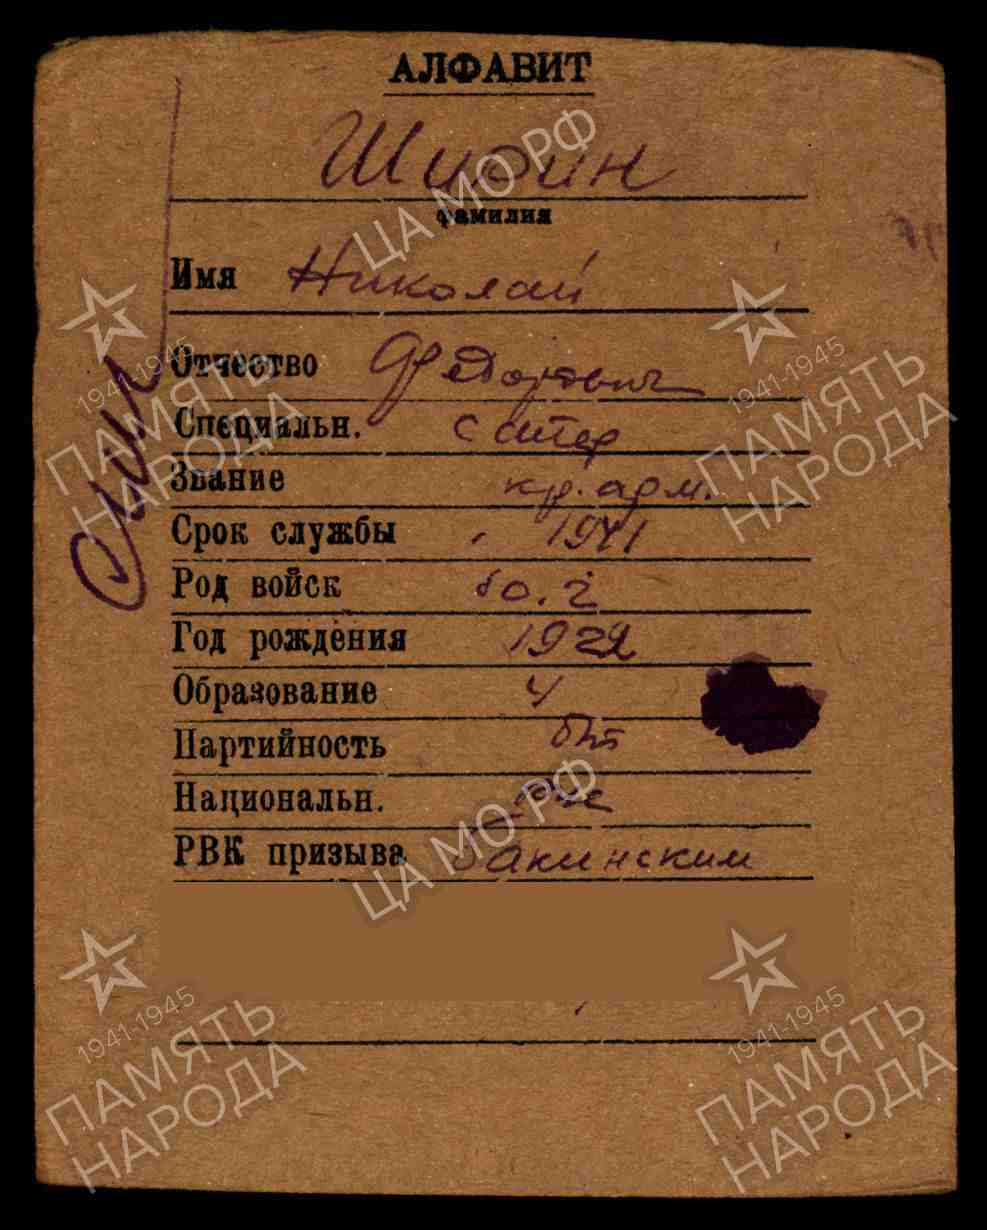 АЛФАВИТ
Шидин
фамилия
Имя Николай
Отчество Федорович
Специальн.
Звание кр. арм.
Срок службы 1941
Род войск
Год рождения 1922
Образование 4
Партийность б/п
Национальн. рус
РВК призыва Бакинским
ЦА МО РФ
1941-1945
ПАМЯТЬ
НАРОДА
1941-1945
ПАМЯТЬ
НАРОДА
ЦА МО РФ
1941-1945
ПАМЯТЬ
НАРОДА
1941-1945
ПАМЯТЬ
НАРОДА